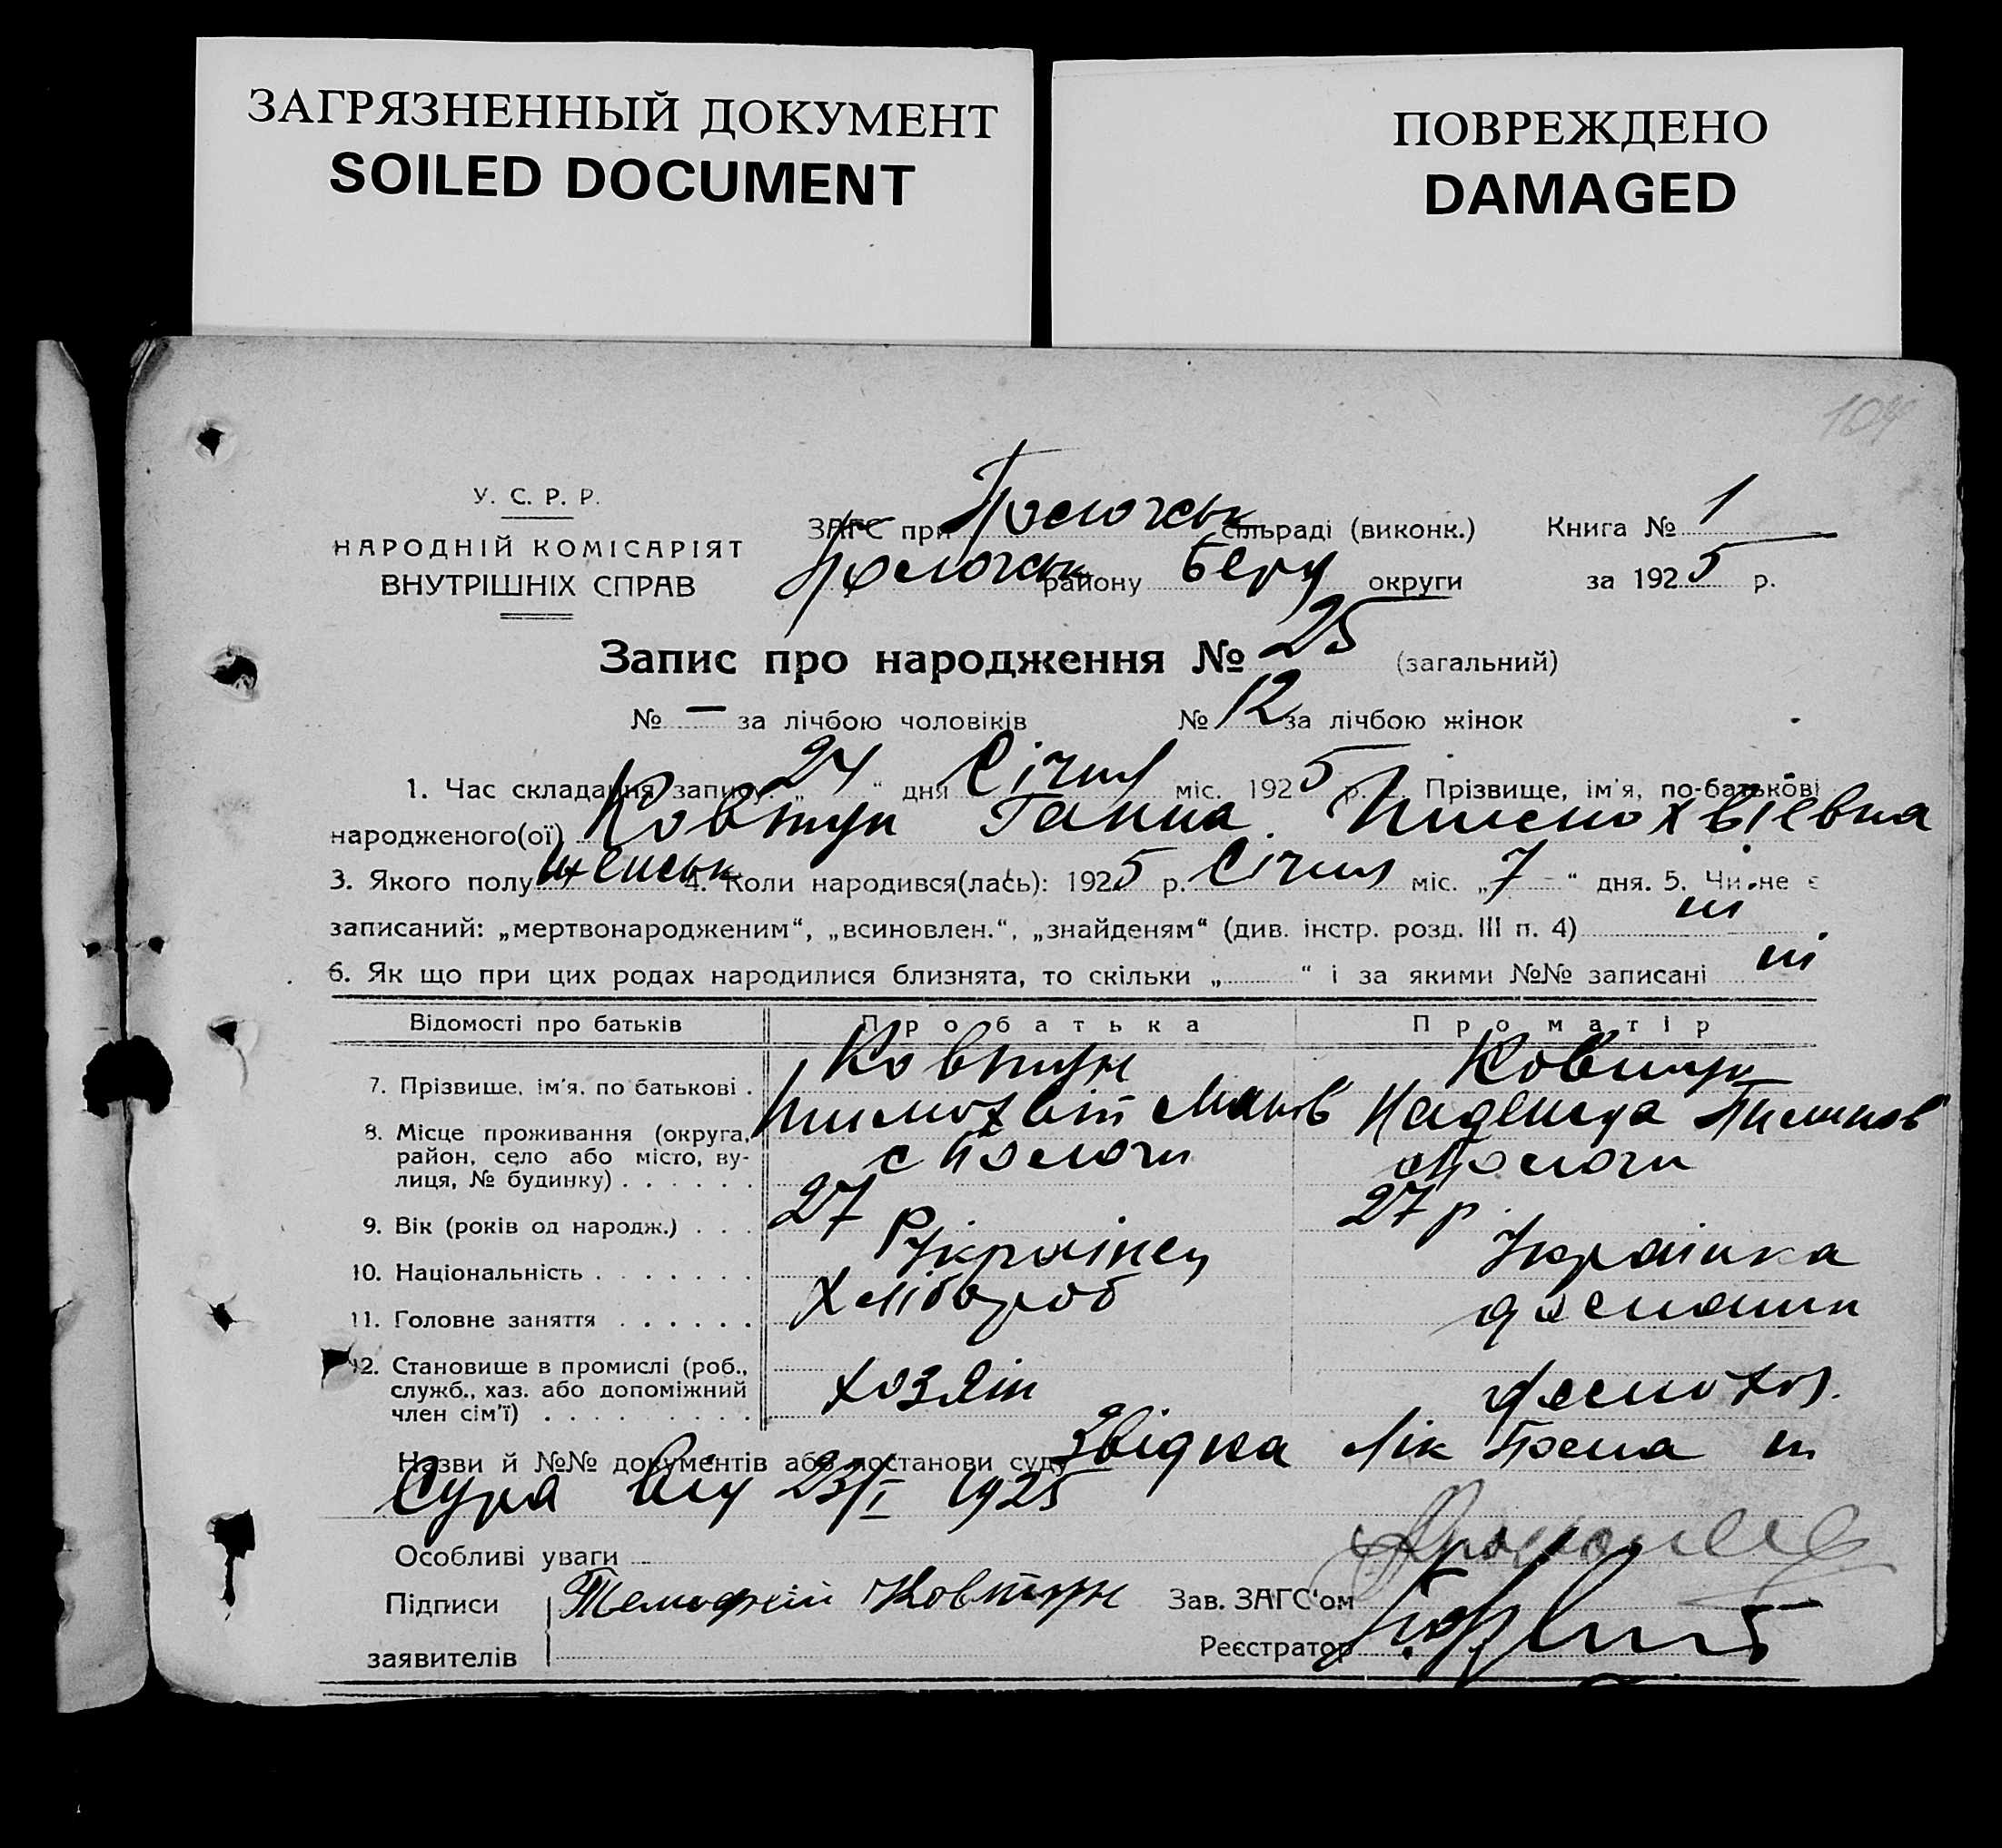 ЗАГРЯЗНЕННЫЙ ДОКУМЕНТ
SOILED DOCUMENT
ПОВРЕЖДЕНО
DAMAGED
104
У. С. Р. Р.
НАРОДНІЙ КОМІСАРІЯТ
ВНУТРІШНІХ СПРАВ
ЗАГС при Пологськ сільраді (виконк.) Книга № 1
Пологськ району Берд округи за 1925 р.
Запис про народження № 25 (загальний)
№ — за лічбою чоловіків № 12 за лічбою жінок
1. Час складання запису: „24“ дня Січня міс. 1925 р. 2. Прізвище, ім'я, по-батькові
народженого(ої) Ковтун Ганна Тимохвіевна
3. Якого полу женськ 4. Коли народився(лась): 1925 р. Січня міс. „7“ дня. 5. Чи не є
записаний: „мертвонародженим“, „всиновлен.“, „знайденям“ (див. інстр. розд. III п. 4) ні
6. Як що при цих родах народилися близнята, то скільки „ “ і за якими №№ записані ні
Відомості про батьків Про батька Про матір
7. Прізвище, ім'я, по батькові . Ковтун Ковтун
Тимохвій Надежда
8. Місце проживання (округа, район, село або місто, вулиця, № будинку) . . . . . . с Пологи с Пологи
9. Вік (років од народж.) . . . 27 р 27 р.
10. Національність . . . . . . . Українец Українка
11. Головне заняття . . . . . . Хлібороб домашн
12. Становище в промислі (роб., служб., хаз. або допоміжний член сім'ї) . . . . . . . . . хозяін домохоз.
Назви й №№ документів або постанови суду Звідка Лік
від 23/I 1925
Особливі уваги
Підписи Ковтун Зав. ЗАГС'ом
заявителів Реєстратор